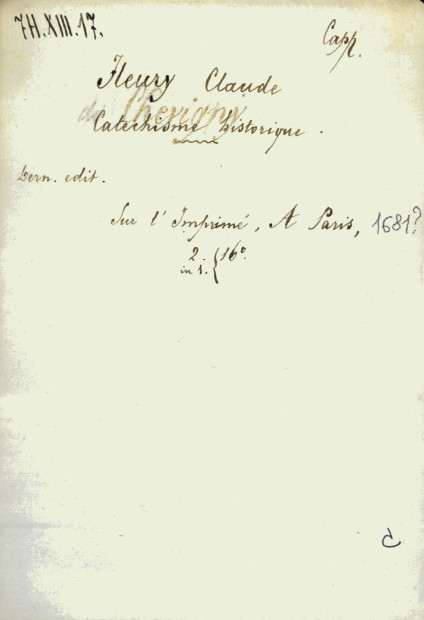 7H.XIII.17.
Caph.
Fleury Claude
de Chevigny
Catechisme historique.
Dern. edit.
Sur l'Imprimé, A Paris, 1681?
2. { 16°.
in 1.